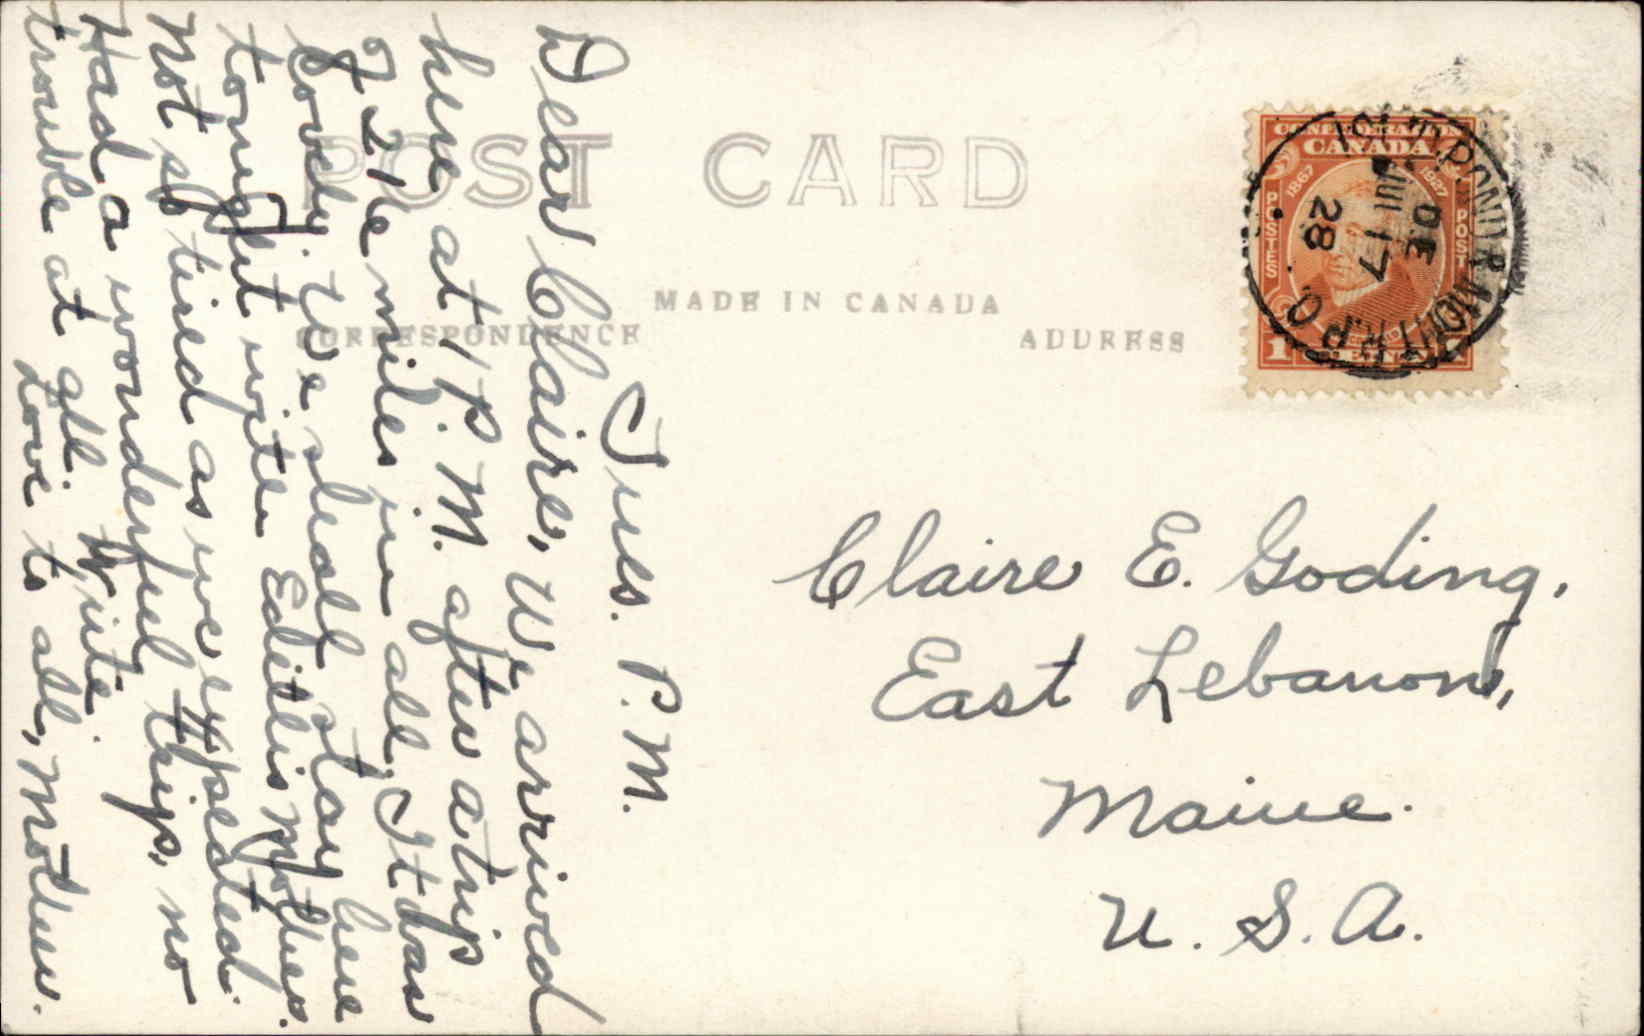 POST CARD
MADE IN CANADA
CORRESPONDENCE
ADDRESS
CONFEDERATION
CANADA
1867 1927
POSTES
POST
1 CENT 1
ISL. POND & MONT. R.P.O.
DE
17
28
Tues. P.M.
Dear Claire, We arrived
here at 1 P.M. after a trip
of 221 miles in all. It was
lovely. We shall stay here
tonight with Edith's mother.
Not so tired as we expected.
Had a wonderful trip, no
trouble at all. Write.
Love to all, Mother.
Claire E. Goding,
East Lebanon,
Maine.
U. S. A.